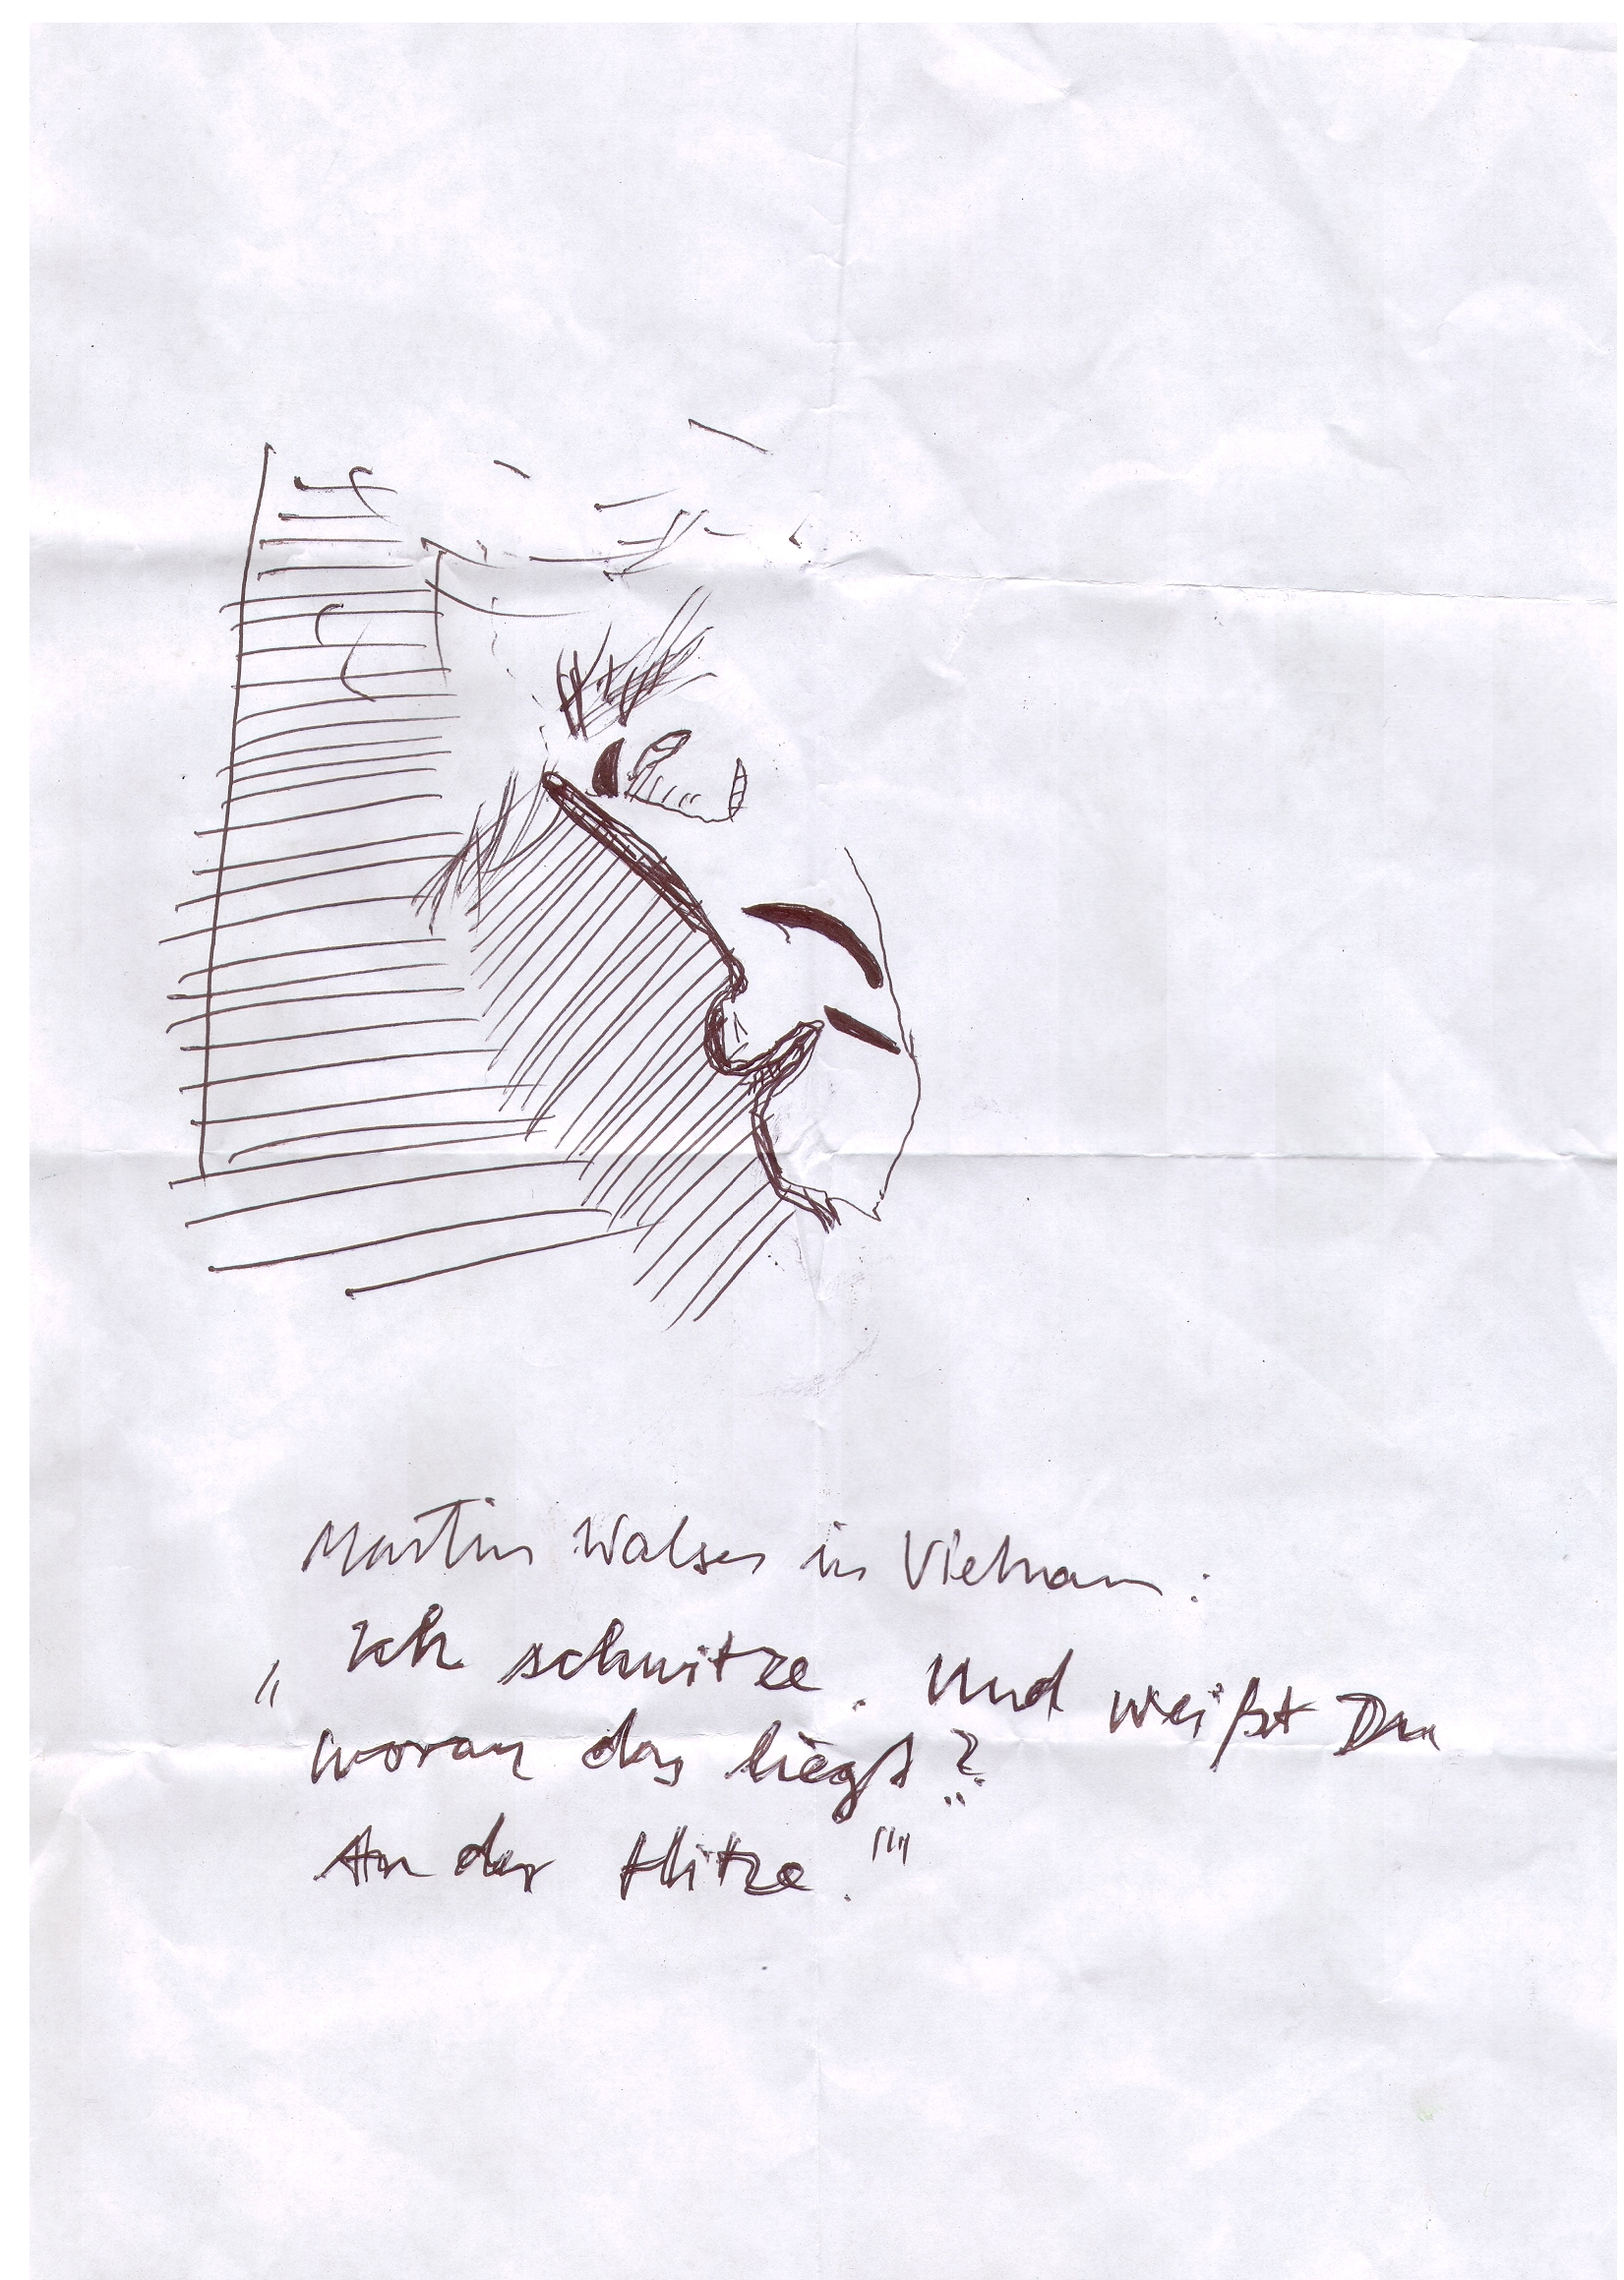 Martin Walser in Vietnam:
„Ich schwitze. Und weißt Du
woran das liegt?
An der Hitze."